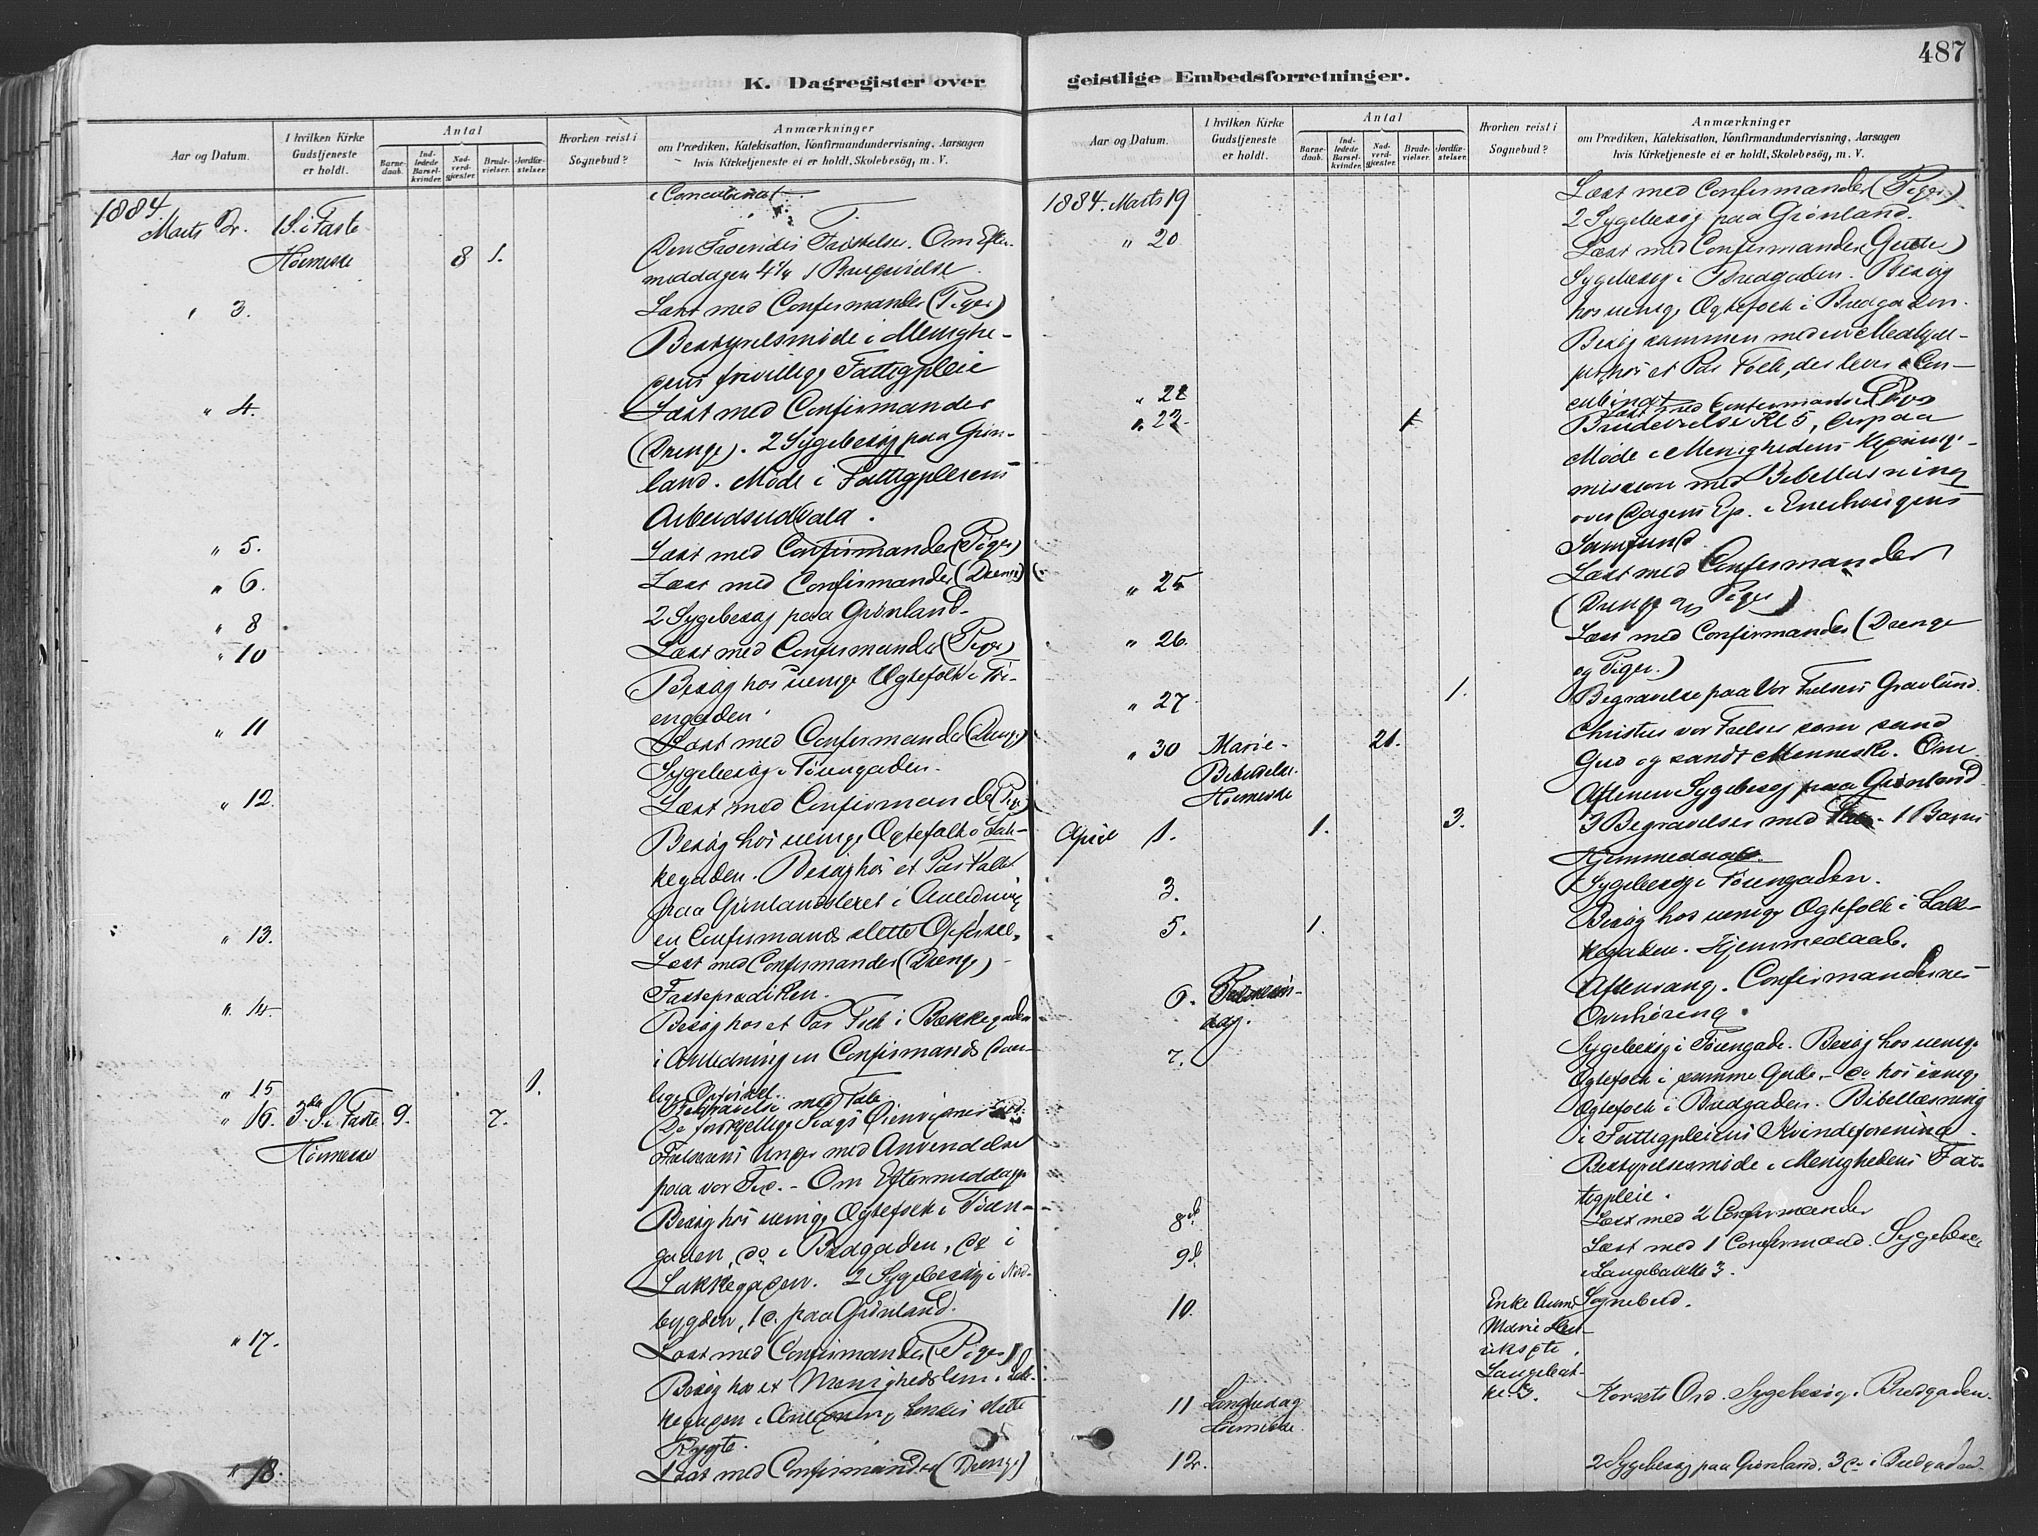 487
K. Dagregister over
geistlige Embedsforretninger.
Aar og Datum.
I hvilken Kirke
Gudstjeneste
er holdt.
Antal
Barne-
daab.
Ind-
ledede
Barsel-
kvinder.
Nad-
verd-
gjæster.
Brude-
vielser.
Jordfæ-
stelser.
Hvorhen reist i
Sognebud?
Anmærkninger
om Prædiken, Katekisation, Konfirmandundervisning, Aarsagen
hvis Kirketjeneste ei er holdt, Skolebesøg, m. V.
i Concubinat.
1884.
Marts 2. 1 S. i Faste
Høimesse 8 1.
Fristelse. Om Efter-
middagen 4½ 1 Brudevielse.
" 3. Læst med Confirmander (Piger)
Bestyrelsesmøde i Menighe-
dens frivillige Fattigpleie
" 4. Læst med Confirmander
(Drenge). 2 Sygebesøg paa Grøn-
land. Møde i Fattigpleiens
Arbeidsudvalg.
" 5. Læst med Confirmander (Piger)
" 6. Læst med Confirmander (Drenge)
" 8 2 Sygebesøg paa Grønland.
" 10 Læst med Confirmander (Piger)
Besøg hos uenige Ægtefolk i Tø-
iengaden.
" 11 Læst med Confirmander (Drenge)
Sygebesøg i Tøiengaden.
" 12. Læst med Confirmander (Piger)
Besøg hos uenige Ægtefolk i Lak-
kegaden. Besøg hos et Par Folk
paa Grønlandsleret i Anledning
" 13. en Confirmands slette Opførsel.
Læst med Confirmander (Drenge)
Fasteprædiken.
" 14 Besøg hos et Par Folk i Bækkegaden
i Anledning en Confirmands daar-
lige Opførsel.
" 15 1. Begravelse med Tale
" 16. 3die S. i Faste 9. 2.
Høimesse
De forskjellige Slags
med Anvendelse
paa vor Tid. - Om Eftermiddagen
Besøg hos uenige Ægtefolk i Tøien-
gaden, do i Bredgaden, do i
Lakkegaden. 2 Sygebesøg i Nord-
bygden, 1 do. paa Grønland.
" 17. Læst med Confirmander (Piger)
Besøg hos et Menighedslem i Lak-
kegaden i Anledning hendes slette
Rygte.
" 18. Læst med Confirmander (Drenge)
Aar og Datum.
I hvilken Kirke
Gudstjeneste
er holdt.
Antal
Barne-
daab.
Ind-
ledede
Barsel-
kvinder.
Nad-
verd-
gjæster.
Brude-
vielser.
Jordfæ-
stelser.
Hvorhen reist i
Sognebud?
Anmærkninger
om Prædiken, Katekisation, Konfirmandundervisning, Aarsagen
hvis Kirketjeneste ei er holdt, Skolebesøg, m. V.
1884. Marts 19 Læst med Confirmander (Piger)
2 Sygebesøg paa Grønland.
" 20 Læst med Confirmander (Gutter)
Sygebesøg i Bredgaden. Besøg
hos uenige Ægtefolk i Bredgaden.
Besøg sammen med en Medhjæl-
per hos et Par Folk, der lever i Con-
cubinat
" 21 Læst med Confirmander (Piger)
" 22. 1 Brudevielse Kl 5,
Møde i Menighedens
mission med Bibellæsning
over Dagens Ep. i Enerhaugens
Samfund
" 25 Læst med Confirmander
(Drenge og Piger)
" 26. Læst med Confirmander (Drenge
og Piger.)
" 27 1. Begravelse paa Vor Frelsers Gravlund.
" 30 Marie-
Bebudelse.
Høimesse
21.
Christus vor Frelser som sand
Gud og sandt Menneske. Om
Aftenen Sygebesøg paa Grønland
April 1. 1. 3. 3 Begravelser med Tale. 1 Barns
Hjemmedaab.
3. Sygebesøg i Tøiengaden.
5. 1. Besøg hos uenige Ægtefolk i Lak-
kegaden. Hjemmedaab.
6. Palmesøn-
dag.
Aftensang. Confirmandernes
Overhøring.
7. Sygebesøg i Tøiengade. Besøg hos uenige
Ægtefolk i samme Gade, - do hos uenige
Ægtefolk i Bredgaden. Bibellæsning
i Fattigpleiens Kvindeforening.
Bestyrelsesmøde i Menighedens Fat-
tigpleie.
8de Læst med 2 Confirmander
9de Læst med 1 Confirmand. Sygebesøg
i Langebakke 3.
10. Enke Anne
Marie
Langebak-
ke 3.
Sognebud.
11 Langfredag
Høimesse.
Korsets Ord. Sygebesøg i Bredgaden.
12. 2 Sygebesøg paa Grønland. 3 do i Bredgaden.